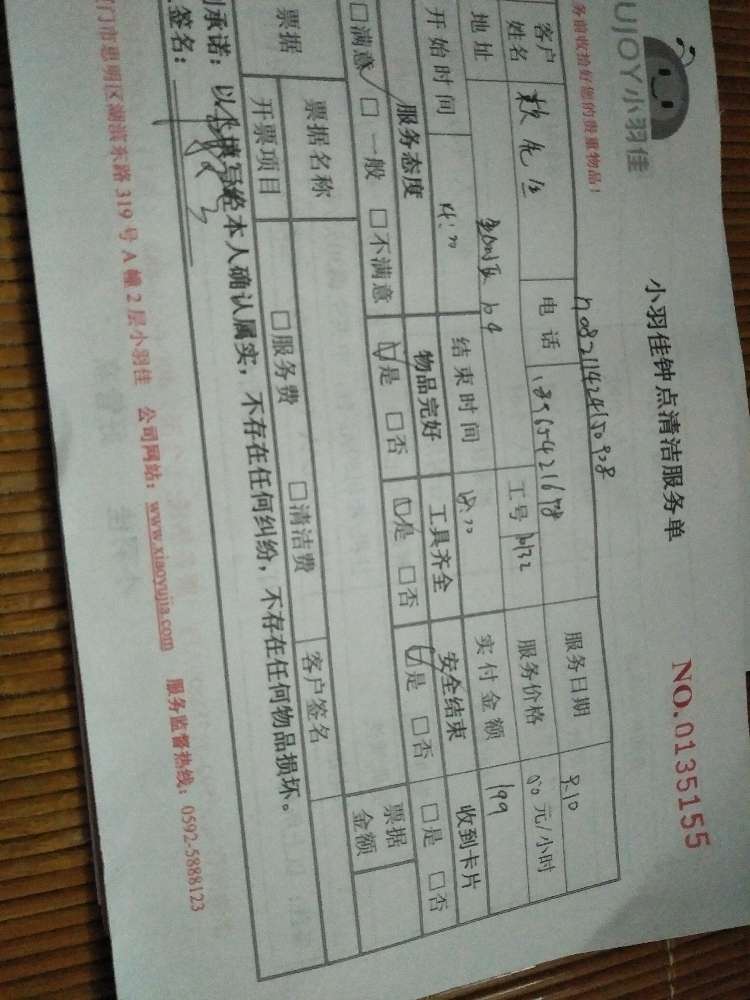 UJOY小羽佳
小羽佳钟点清洁服务单
NO.0135155
务前收拾好您的贵重物品!
客户姓名 先生 电话 服务日期 9.10
地址 工号 服务价格 50元/小时
开始时间 14:00 结束时间 18:00 实付金额 199
服务态度 物品完好 工具齐全 安全结束 收到卡片
□满意 □一般 □不满意 □是 □否 □是 □否 □是 □否 □是 □否
票据 票据名称 □服务费 □清洁费 客户签名 票据金额
开票项目
承诺:以上填写经本人确认属实,不存在任何纠纷,不存在任何物品损坏。
签名:
门市思明区湖滨东路319号A幢2层小羽佳 公司网站:www.xiaoyujia.com 服务监督热线:0592-5888123